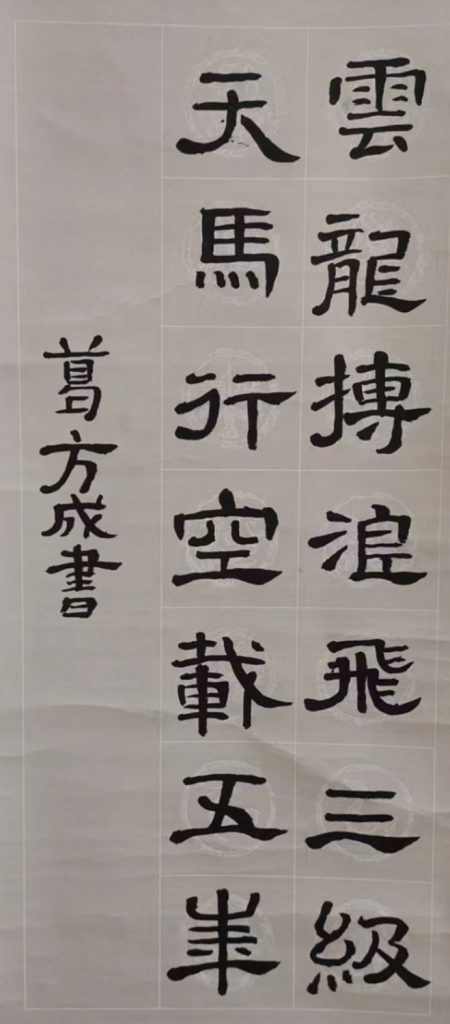 雲龍搏浪飛三級
天馬行空載五年
葛方成書